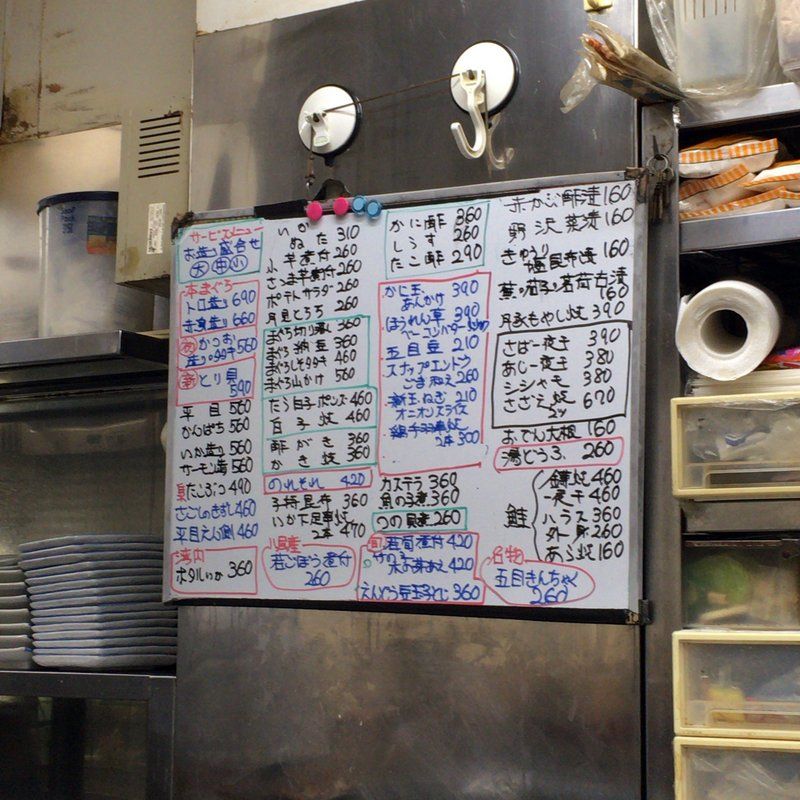 サービスメニュー
お造り盛合せ
大 中 小
本まぐろ
トロ造り 690
赤身造り 660
かつお
造り・タタキ 560
とり貝
590
平目 560
かんぱち 560
いか造り 560
サーモン造り 560
たこぶつ 490
さごしのきずし 460
平目えん側 460
湾内
ホタルいか 360
いか
ぬた 310
小芋煮付 260
さつま芋 260
ポテトサラダ 260
月見とろろ 260
まぐろ切り落し 360
まぐろ納豆 360
まぐろしそタタキ 460
まぐろ山かけ 560
たら白子ポンズ 460
白子焼 460
酢がき 360
かき焼 360
のれそれ 420
子持昆布 360
いか下足串焼
2本 470
若ごぼう煮付
260
かに酢 360
しらす 260
たこ酢 290
かに玉 390
あんかけ
ほうれん草 390
ベーコンバター炒め
五目豆 210
スナップエンドウ
ごまあえ 260
新玉ねぎ 210
オニオンスライス
2本 300
カステラ 360
魚の子煮 360
つの貝煮 260
旬 若筍煮付 420
竹の子
木の芽あえ 420
えんどう豆玉子とじ 360
赤かぶ酢漬 160
野沢菜漬 160
きゅうり
160
160
月永もやし炒 390
さば一夜干 390
あじ一夜干 380
シシャモ 380
さざえ焼 670
2ケ
おでん大根 160
湯どうふ 260
鮭
鎌焼 460
一夜干 460
ハラス 360
外 260
あら焼 160
名物
五目きんちゃく
260